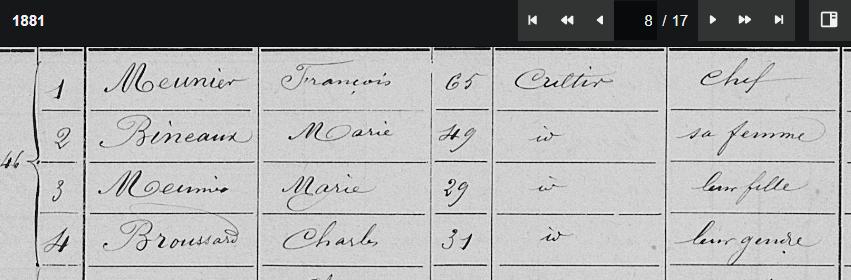 1881 8 / 17
1 Meunier François 65 Cultivr chef
2 Bineaux Marie 49 id sa femme
46
3 Meunier Marie 29 id leur fille
4 Broussard Charles 31 id leur gendre